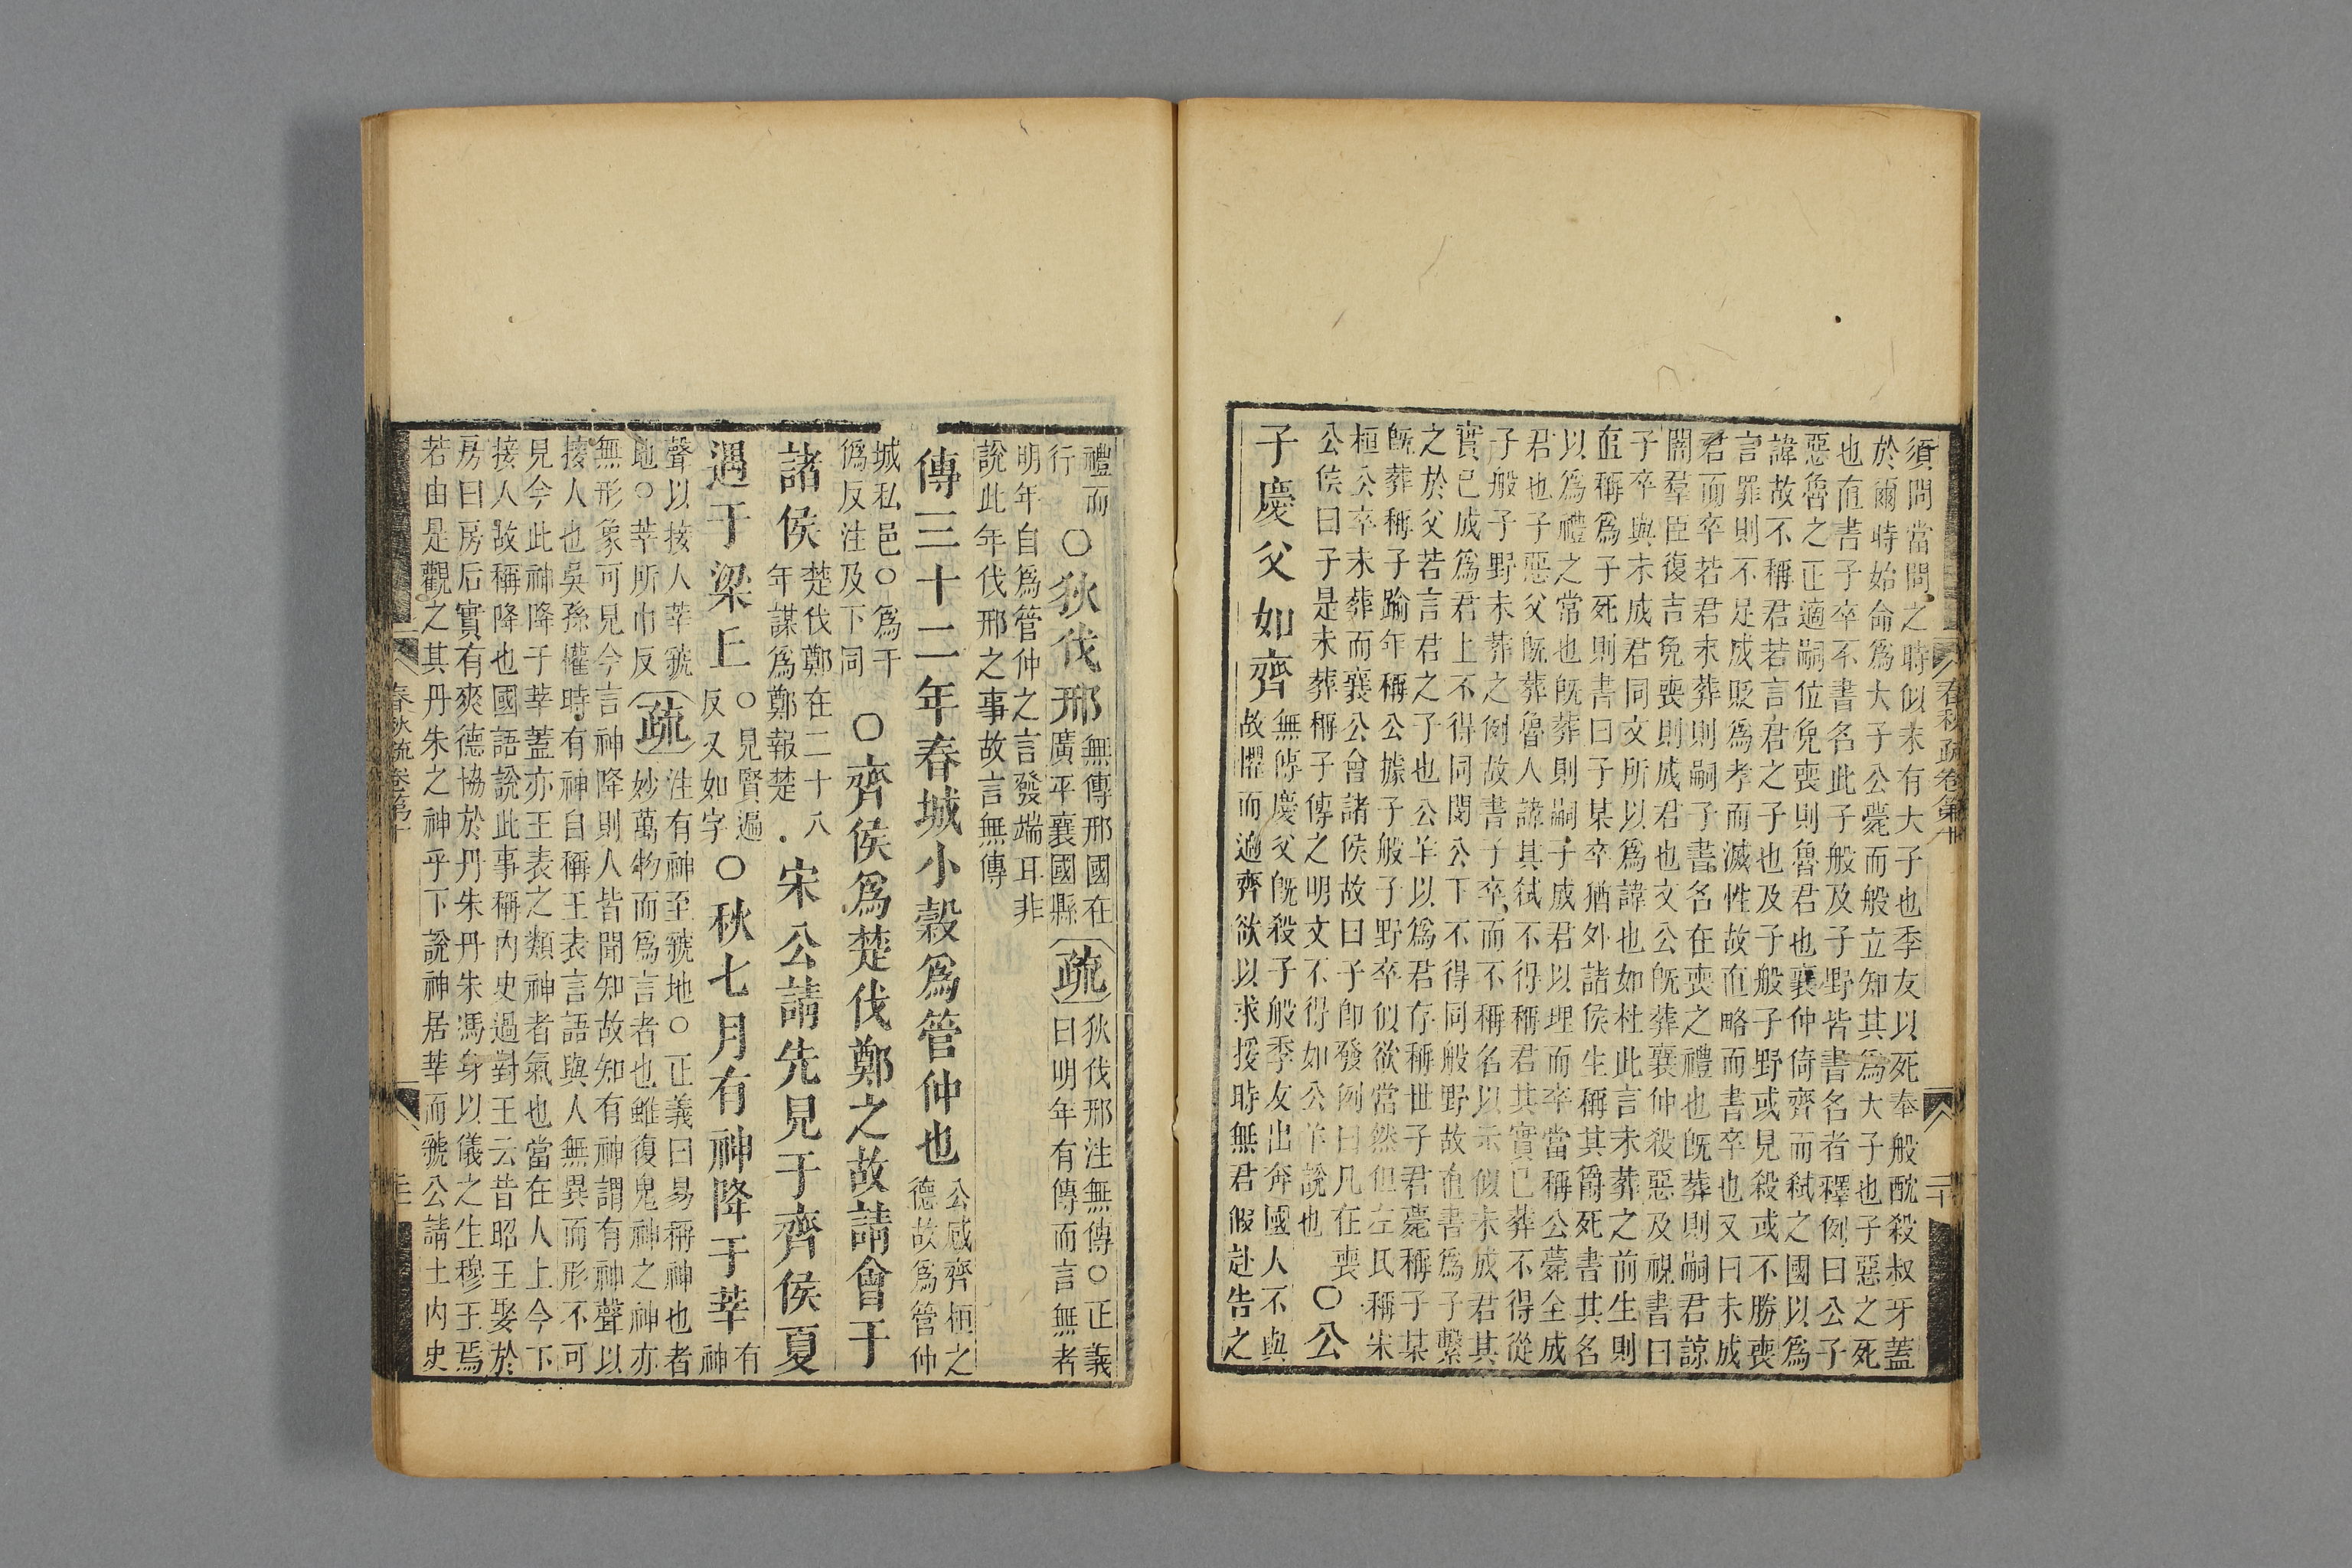 春秋疏卷第十
二十
須問當問之時似未有大子也季友以死奉般酖殺叔牙蓋
於爾時始命爲大子公薨而般立知其爲大子也子惡之死
也直書子卒不書名此子般及子野皆書名者釋例曰公子
惡魯之正適嗣位免喪則魯君也襄仲倚齊而弑之國以爲
諱故不稱君若言君之子也及子般子野或見殺或不勝喪
言罪則不足成貶爲孝而滅性故直略而書卒也又曰未成
君而卒若君未葬則嗣子書名在喪之禮也旣葬則嗣君諒
闇羣臣復吉免喪則成君也文公旣葬襄仲殺惡及視書曰
子卒與未成君同文所以爲諱也如杜此言未葬之前生則
直稱爲子死則書曰子某卒猶外諸侯生稱其爵死書其名
以爲禮之常也旣葬則嗣子成君以理而卒當稱公薨全成
君也子惡父旣葬魯人諱其弑不得稱君其實已葬不得從
子般子野未葬之例故書子卒而不稱名以示似未成君其
實已成爲君上不得同閔公下不得同般野故直書爲子繫
之於父若言君之子也公羊以爲君存稱世子君薨稱子某
旣葬稱子踰年稱公據子般子野卒似欲當然但左氏稱宋
桓公卒未葬而襄公會諸侯故曰子卽發例曰凡在喪
公侯曰子是未葬稱子傳之明文不得如公羊說也
○公
子慶父如齊
無傳慶父旣殺子般季友出奔國人不與
故懼而適齊欲以求援時無君假赴告之
禮而
行
○狄伐邢
無傳邢國在
廣平襄國縣
疏
狄伐邢注無傳○正義
曰明年有傳而言無者
明年自爲管仲之言發端耳非
說此年伐邢之事故言無傳
傳三十二年春城小穀爲管仲也
公感齊桓之
德故爲管仲
城私邑○爲于
僞反注及下同
○齊侯爲楚伐鄭之故請會于
諸侯
楚伐鄭在二十八
年謀爲鄭報楚
宋公請先見于齊侯夏
遇于梁丘
○見賢遍
反又如字
○秋七月有神降于莘
有
神
聲以接人莘虢
地○莘所巾反
疏
注有神至虢地○正義曰易稱神也者
妙萬物而爲言者也雖復鬼神之神亦
無形象可見今言神降則人皆聞知故知有神謂有神聲以
接人也吳孫權時有神自稱王表言語與人無異而形不可
見今此神降于莘蓋亦王表之類神者氣也當在人上今下
接人故稱降也國語說此事稱內史過對王云昔昭王娶於
房曰房后實有爽德協於丹朱丹朱馮身以儀之生穆王焉
若由是觀之其丹朱之神乎下說神居莘而虢公請土內史
春秋疏卷第十